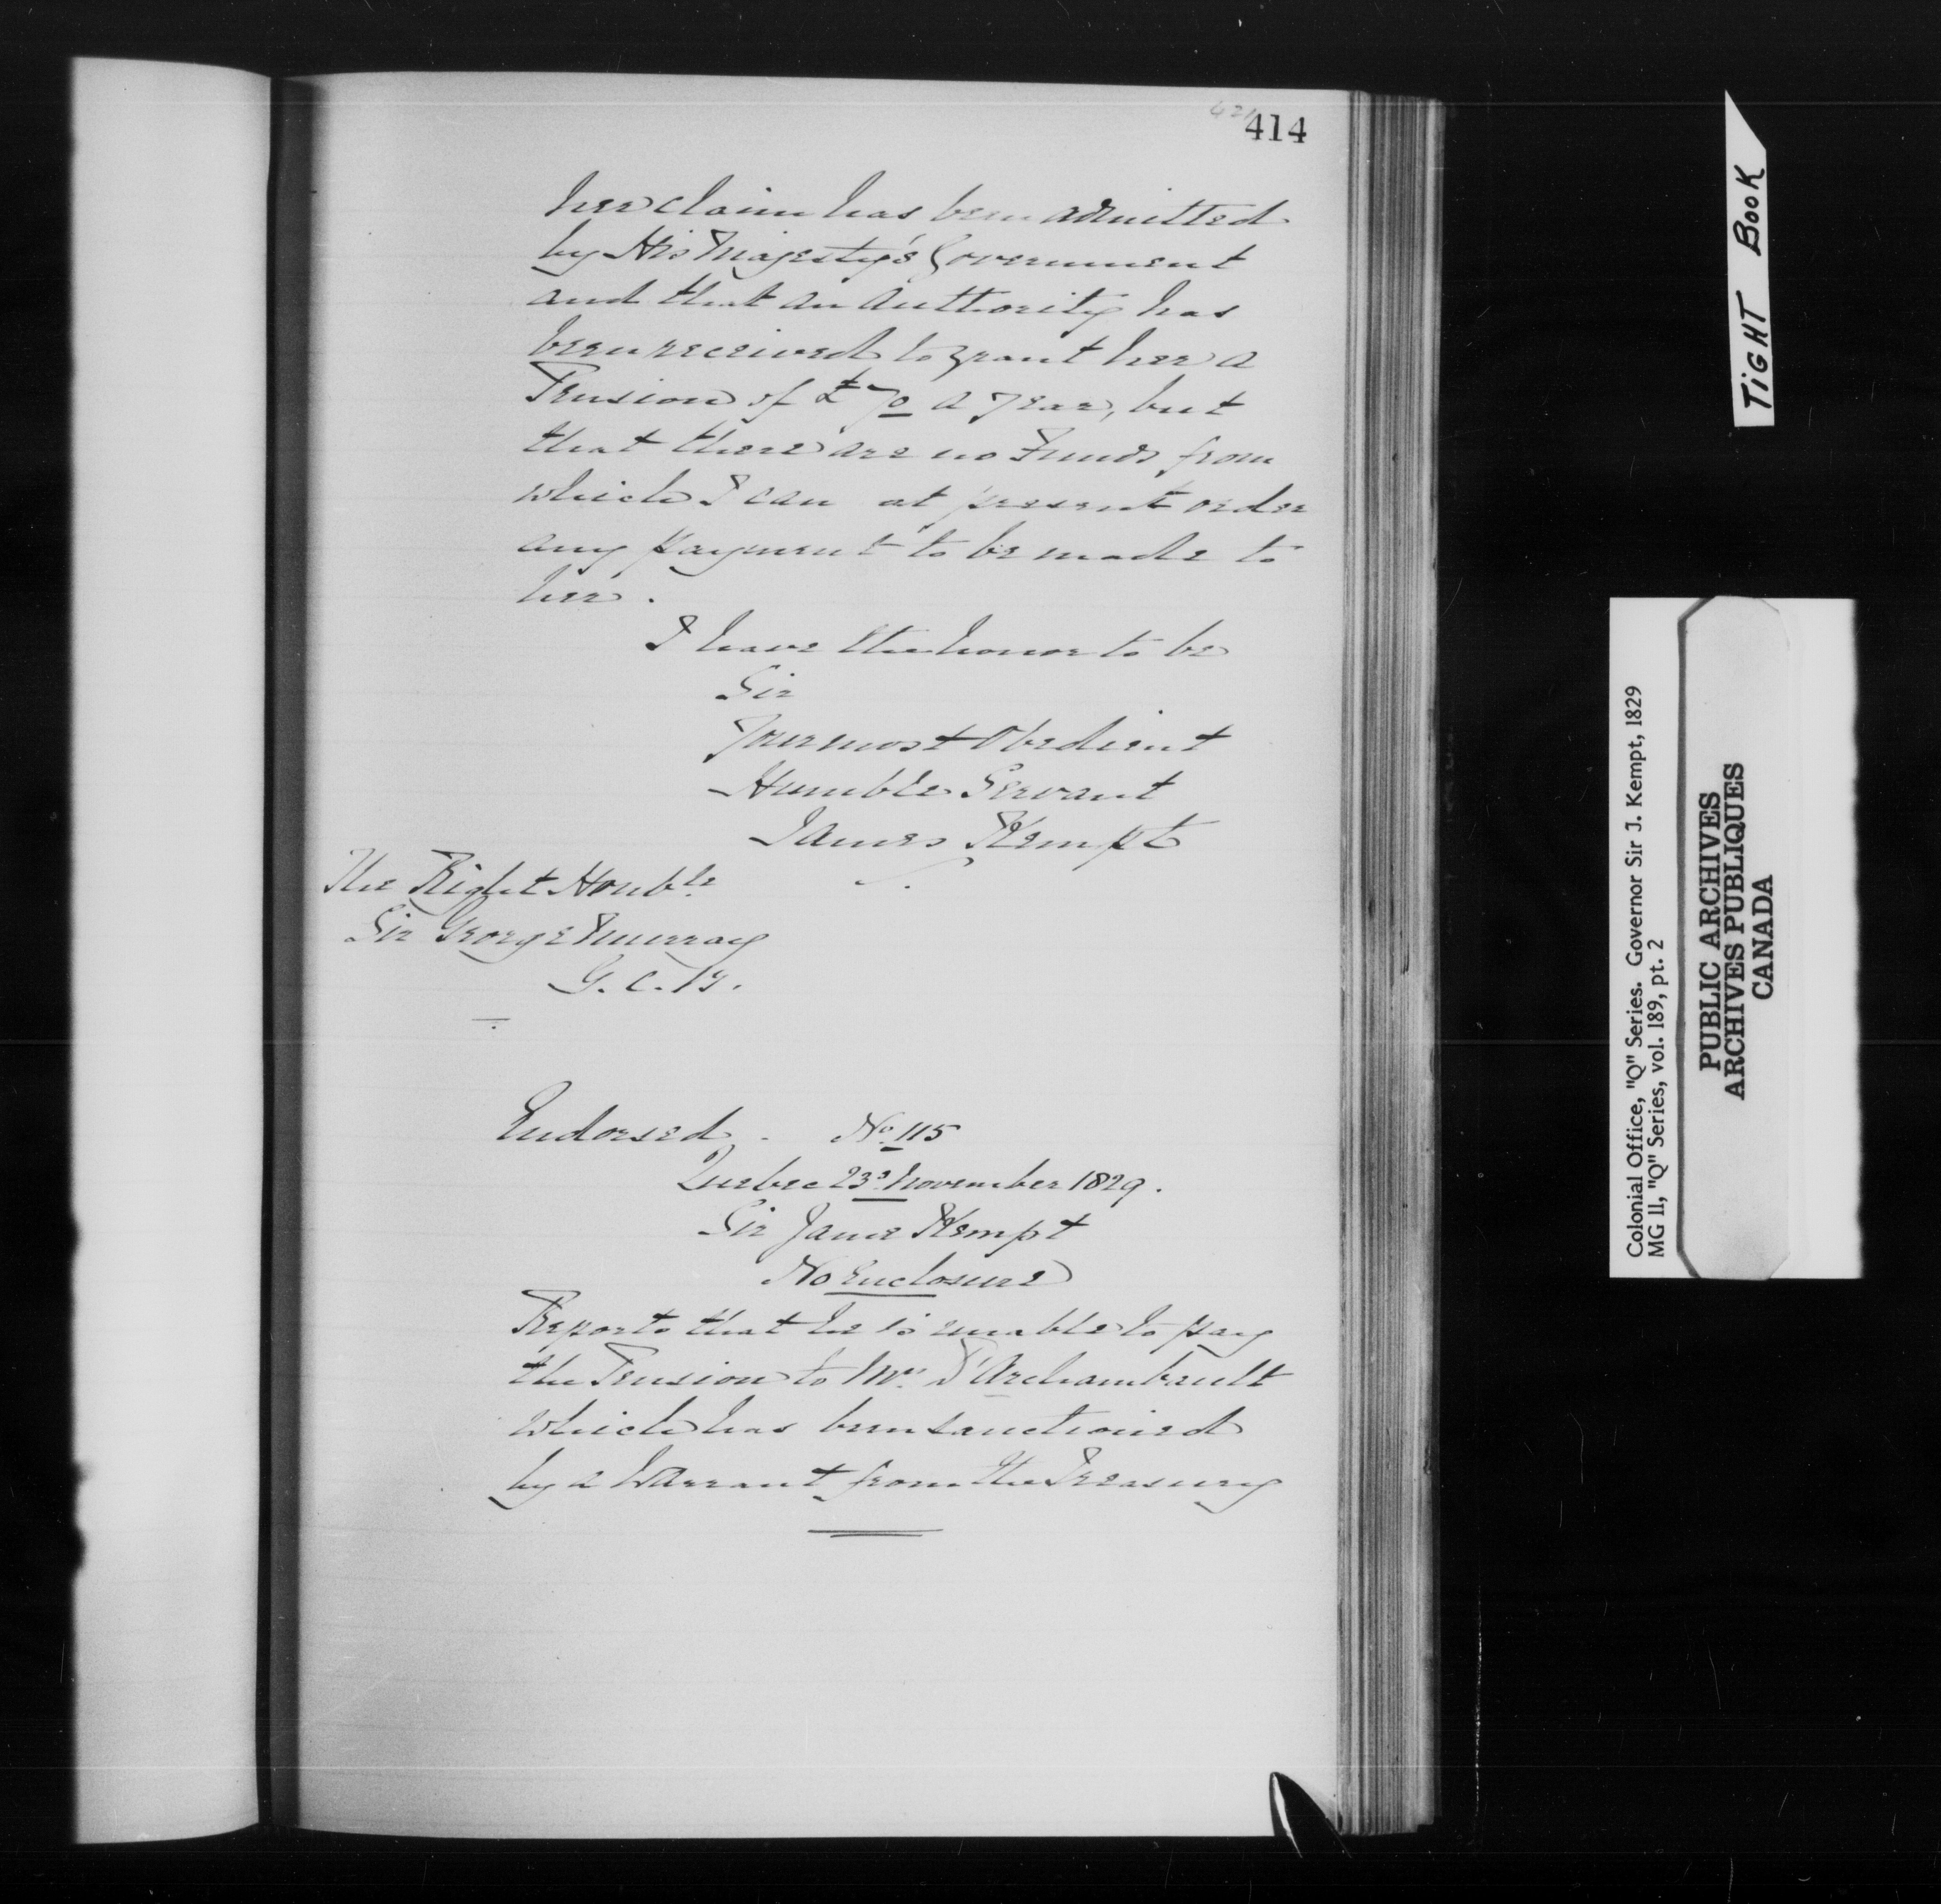 414
her claim has been admitted
by His Majesty's Government
and that an authority has
been received to grant her a
Pension of £70 a year, but
that there are no Funds from
which I can at present order
any payment to be made to
her.
I have the honor to be
Sir
Your most Obedient
Humble Servant
James Kempt
The Right Honble
Sir George Murray
G.C.B.
Endorsed. No. 115
Quebec 23d November 1829.
Sir Jame Kempt
No Enclosure
Reports that he is unable to pay
the Pension to Mrs D'Archambault
which has been sanctioned
by a Warrant from the Treasury
TIGHT BOOK
Colonial Office, "Q" Series. Governor Sir J. Kempt, 1829
MG 11, "Q" Series, vol. 189, pt. 2
PUBLIC ARCHIVES
ARCHIVES PUBLIQUES
CANADA